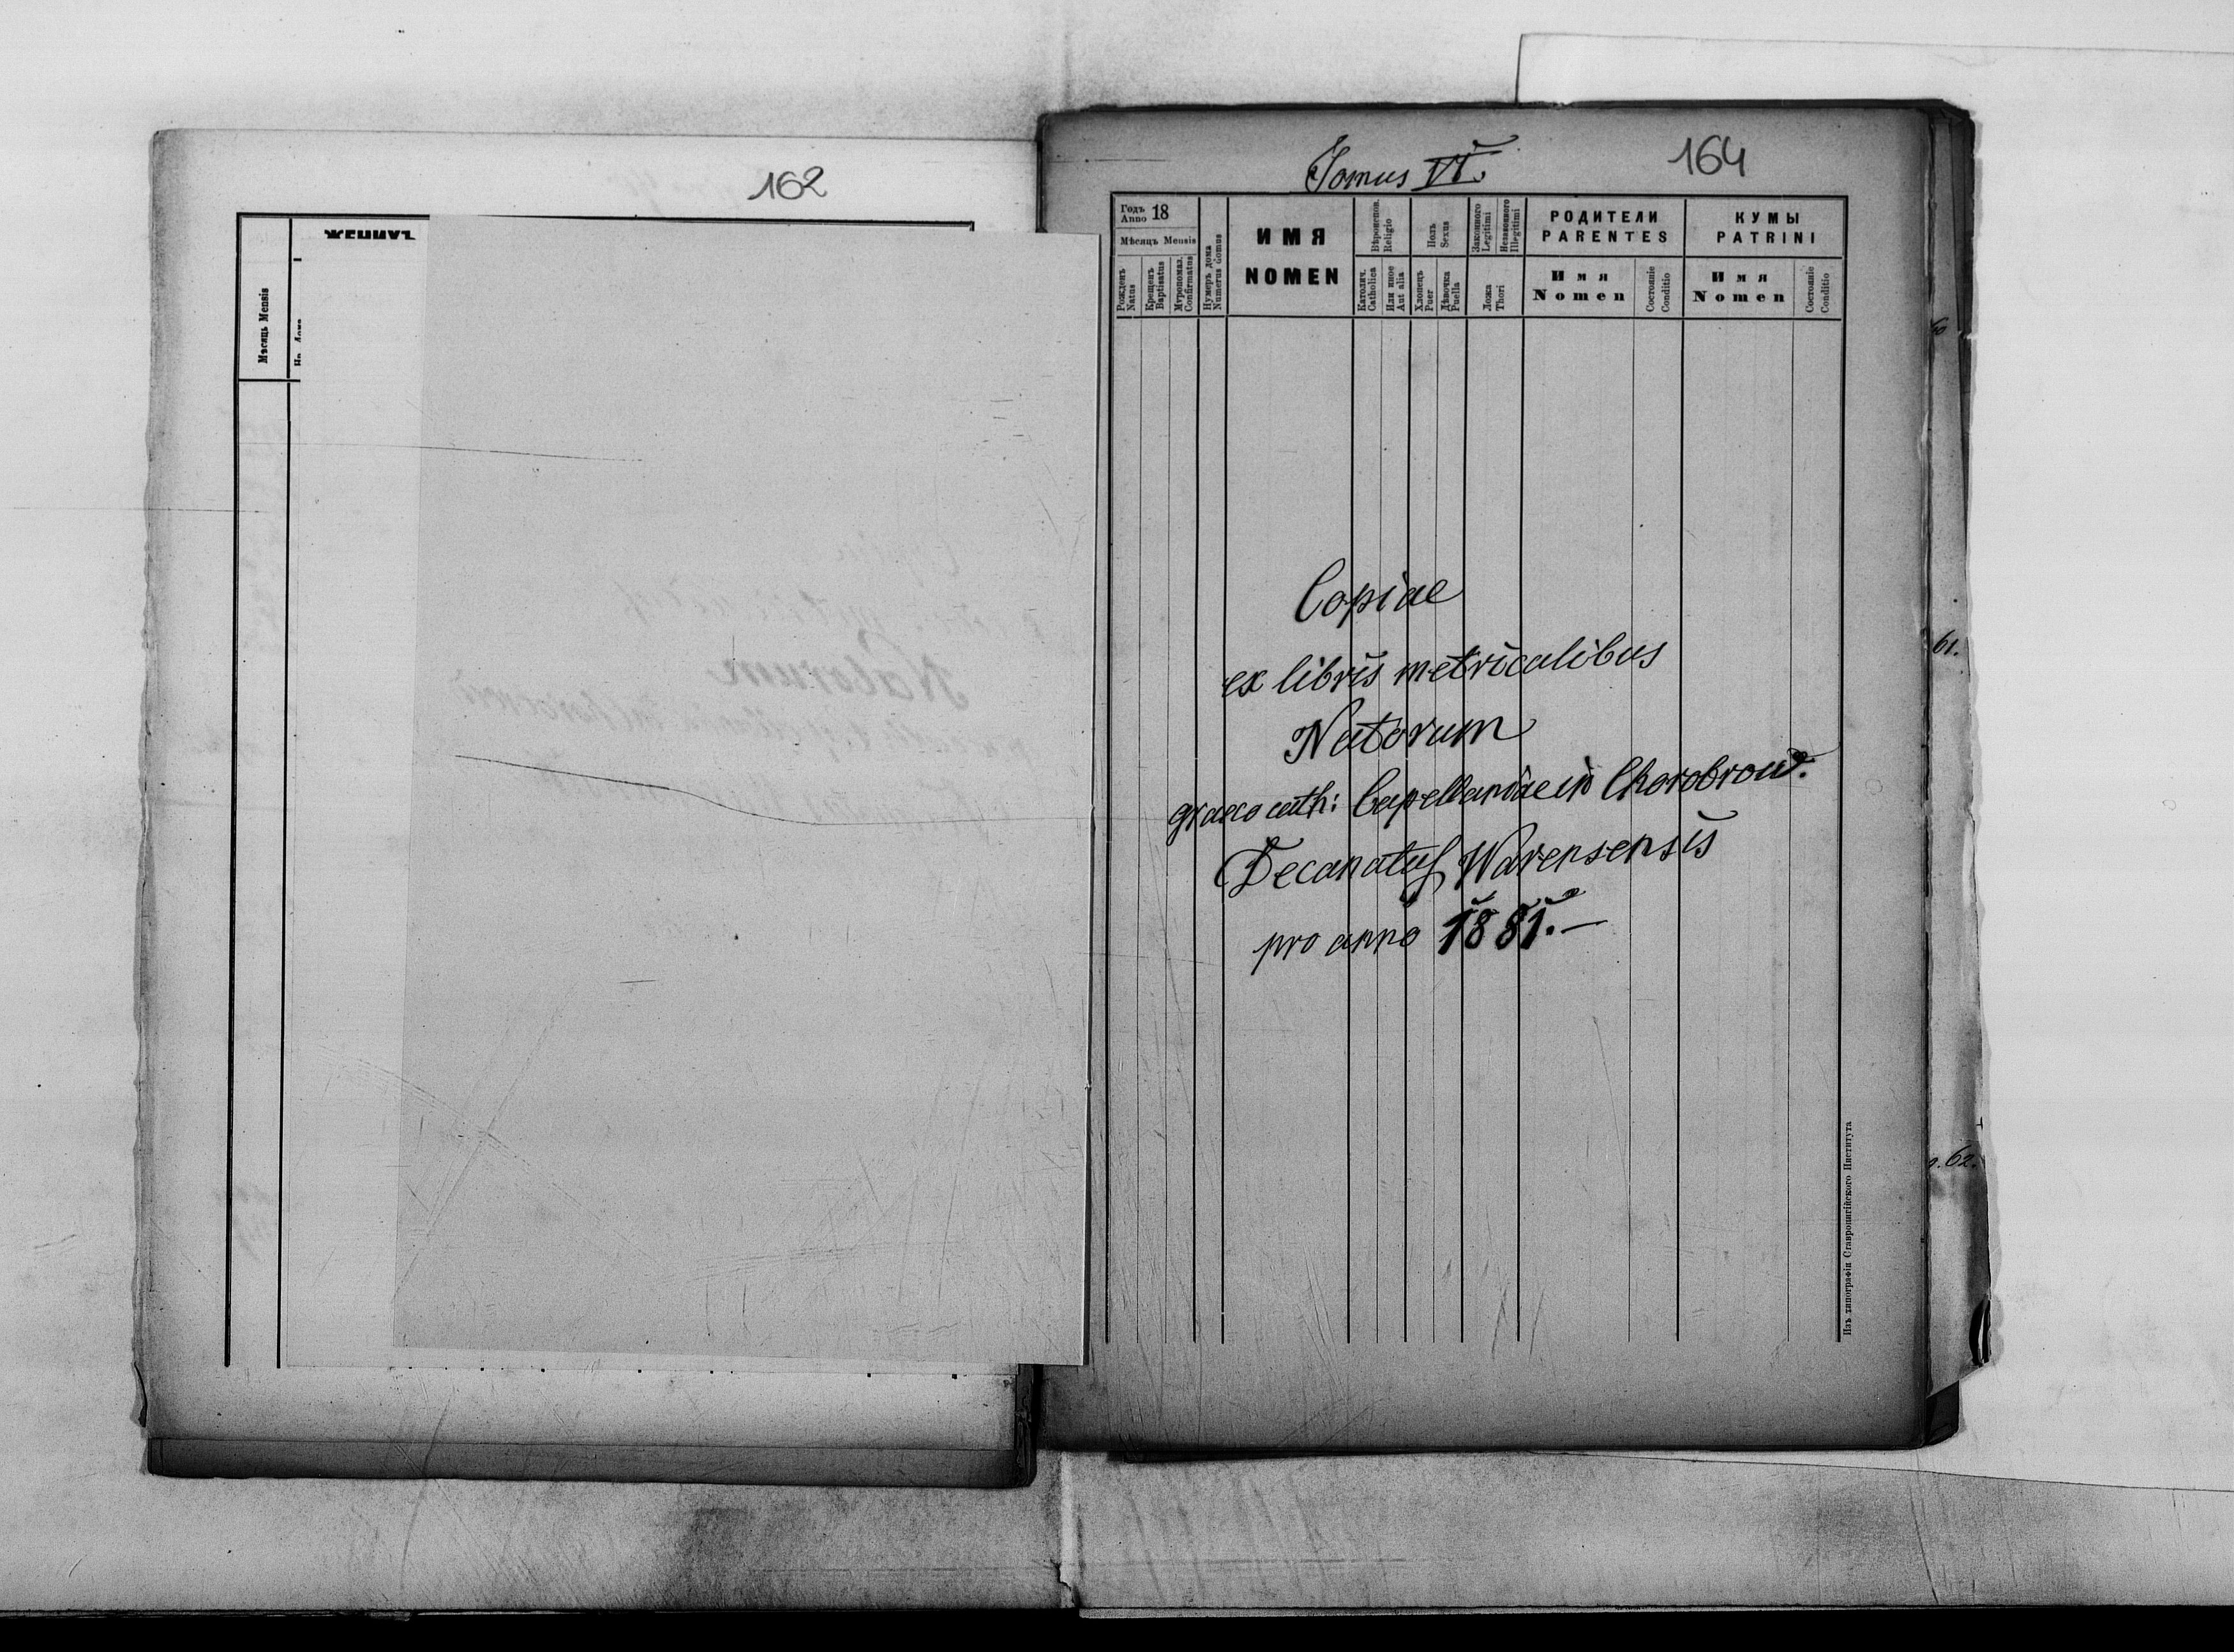 162
ЖЕНИХЪ
Мѣсяць Mensis
Tomus VI.
164
Годъ
Anno 18
Мѣсяцъ Mensis
Рожденъ
Natus
Крещенъ
Baptisatus
Муропомаз.
Confirmatus
Нумеръ дома
Numerus domus
ИМЯ
NOMEN
Вѣроисповѣд.
Religio
Католич.
Catholica
Или иное
Aut alia
Полъ
Sexus
Хлопецъ
Puer
Дѣвочка
Puella
Законного
Legitimi
Незаконного
Illegitimi
Ложа
Thori
РОДИТЕЛИ
PARENTES
Имя
Nomen
Состояніе
Conditio
КУМЫ
PATRINI
Имя
Nomen
Состояніе
Conditio
Copiae
ex libris metricalibus
Natorum
graeco cath: Capellaniae in Chorobrow.
Decanatus Warensensis
pro anno 1881.—
Изъ типографіи Ставропигійского Института
61.
62.